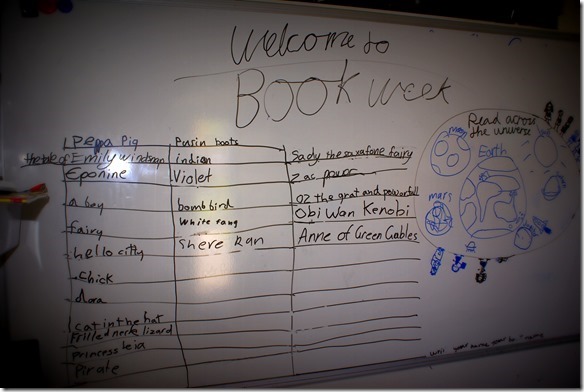 Welcome to
BOOK week
Peppa Pig
the tale of Emily windsnap
Eponine
a boy
fairy
hello citty
chick
dora
cat in the hat
Frilled neck lizard
princess leia
Pirate
Pusin boots
indian
Violet
bambbird
white fang
Shere kan
Sady the saxafone fairy
zac power
oz the grat and powerfull
Obi Wan Kenobi
Anne of Green Gables
Read across
the universe
Earth
mars